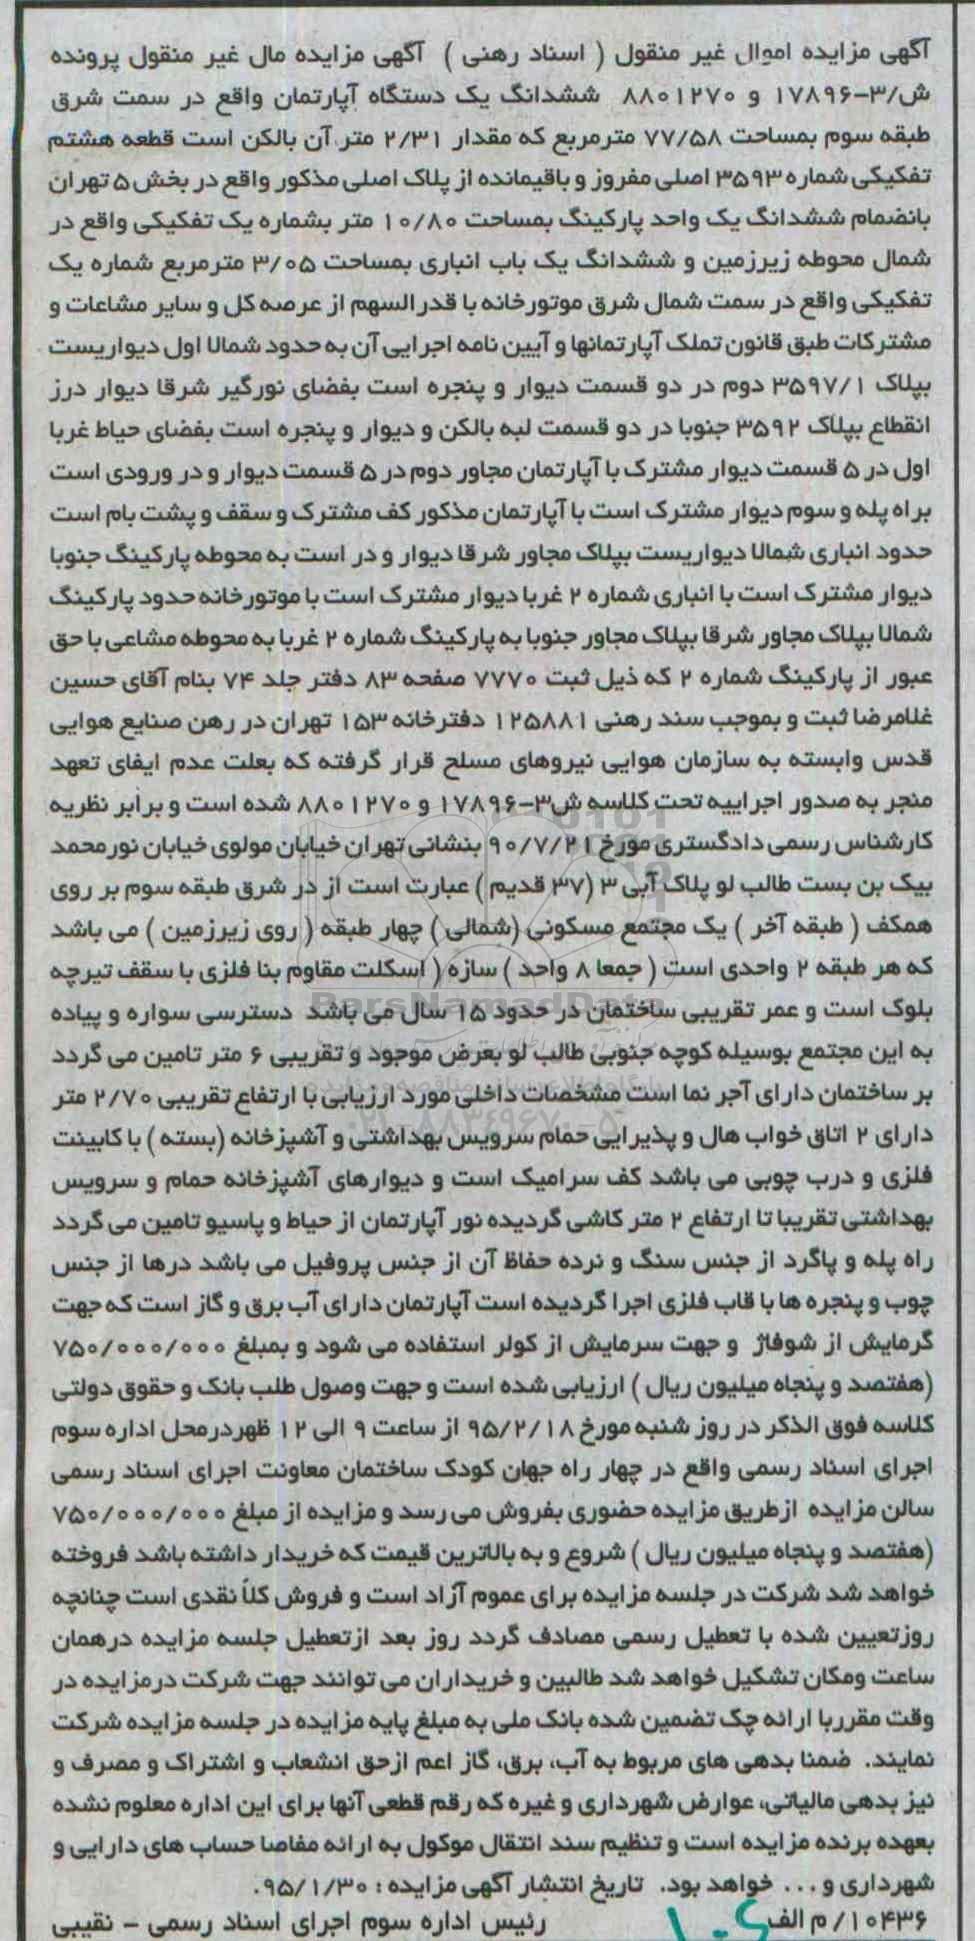 آگهی مزایده اموال غیر منقول ( اسناد رهنی ) آگهی مزایده مال غیر منقول پرونده
ش/۳-۱۷۸۹۶ و ۸۸۰۱۲۷۰ ششدانگ یک دستگاه آپارتمان واقع در سمت شرق
طبقه سوم بمساحت ۷۷/۵۸ مترمربع که مقدار ۲/۳۱ متر آن بالکن است قطعه هشتم
تفکیکی شماره ۳۵۹۳ اصلی مفروز و باقیمانده از پلاک اصلی مذکور واقع در بخش ۵ تهران
بانضمام ششدانگ یک واحد پارکینگ بمساحت ۱۰/۸۰ متر بشماره یک تفکیکی واقع در
شمال محوطه زیرزمین و ششدانگ یک باب انباری بمساحت ۳/۰۵ مترمربع شماره یک
تفکیکی واقع در سمت شمال شرق موتورخانه با قدرالسهم از عرصه کل و سایر مشاعات و
مشترکات طبق قانون تملک آپارتمانها و آیین نامه اجرایی آن به حدود شمالا اول دیواریست
بپلاک ۳۵۹۷/۱ دوم در دو قسمت دیوار و پنجره است بفضای نورگیر شرقا دیوار درز
انقطاع بپلاک ۳۵۹۲ جنوبا در دو قسمت لبه بالکن و دیوار و پنجره است بفضای حیاط غربا
اول در ۵ قسمت دیوار مشترک با آپارتمان مجاور دوم در ۵ قسمت دیوار و در ورودی است
براه پله و سوم دیوار مشترک است با آپارتمان مذکور کف مشترک و سقف و پشت بام است
حدود انباری شمالا دیواریست بپلاک مجاور شرقا دیوار و در است به محوطه پارکینگ جنوبا
دیوار مشترک است با انباری شماره ۲ غربا دیوار مشترک است با موتورخانه حدود پارکینگ
شمالا بپلاک مجاور شرقا بپلاک مجاور جنوبا به پارکینگ شماره ۲ غربا به محوطه مشاعی با حق
عبور از پارکینگ شماره ۲ که ذیل ثبت ۷۷۷۰ صفحه ۸۳ دفتر جلد ۷۴ بنام آقای حسین
غلامرضا ثبت و بموجب سند رهنی ۱۲۵۸۸۱ دفترخانه ۱۵۳ تهران در رهن صنایع هوایی
قدس وابسته به سازمان هوایی نیروهای مسلح قرار گرفته که بعلت عدم ایفای تعهد
منجر به صدور اجراییه تحت کلاسه ش۳-۱۷۸۹۶ و ۸۸۰۱۲۷۰ شده است و برابر نظریه
کارشناس رسمی دادگستری مورخ ۹۰/۷/۲۱ بنشانی تهران خیابان مولوی خیابان نورمحمد
بیک بن بست طالب لو پلاک آبی ۳ (۳۷ قدیم ) عبارت است از در شرق طبقه سوم بر روی
همکف ( طبقه آخر ) یک مجتمع مسکونی (شمالی ) چهار طبقه ( روی زیرزمین ) می باشد
که هر طبقه ۲ واحدی است ( جمعا ۸ واحد ) سازه ( اسکلت مقاوم بنا فلزی با سقف تیرچه
بلوک است و عمر تقریبی ساختمان در حدود ۱۵ سال می باشد دسترسی سواره و پیاده
به این مجتمع بوسیله کوچه جنوبی طالب لو بعرض موجود و تقریبی ۶ متر تامین می گردد
بر ساختمان دارای آجر نما است مشخصات داخلی مورد ارزیابی با ارتفاع تقریبی ۲/۷۰ متر
دارای ۲ اتاق خواب هال و پذیرایی حمام سرویس بهداشتی و آشپزخانه (بسته ) با کابینت
فلزی و درب چوبی می باشد کف سرامیک است و دیوارهای آشپزخانه حمام و سرویس
بهداشتی تقریبا تا ارتفاع ۲ متر کاشی گردیده نور آپارتمان از حیاط و پاسیو تامین می گردد
راه پله و پاگرد از جنس سنگ و نرده حفاظ آن از جنس پروفیل می باشد درها از جنس
چوب و پنجره ها با قاب فلزی اجرا گردیده است آپارتمان دارای آب برق و گاز است که جهت
گرمایش از شوفاژ و جهت سرمایش از کولر استفاده می شود و بمبلغ ۷۵۰/۰۰۰/۰۰۰
(هفتصد و پنجاه میلیون ریال ) ارزیابی شده است و جهت وصول طلب بانک و حقوق دولتی
کلاسه فوق الذکر در روز شنبه مورخ ۹۵/۲/۱۸ از ساعت ۹ الی ۱۲ ظهردرمحل اداره سوم
اجرای اسناد رسمی واقع در چهار راه جهان کودک ساختمان معاونت اجرای اسناد رسمی
سالن مزایده ازطریق مزایده حضوری بفروش می رسد و مزایده از مبلغ ۷۵۰/۰۰۰/۰۰۰
(هفتصد و پنجاه میلیون ریال ) شروع و به بالاترین قیمت که خریدار داشته باشد فروخته
خواهد شد شرکت در جلسه مزایده برای عموم آزاد است و فروش کلاً نقدی است چنانچه
روزتعیین شده با تعطیل رسمی مصادف گردد روز بعد ازتعطیل جلسه مزایده درهمان
ساعت ومکان تشکیل خواهد شد طالبین و خریداران می توانند جهت شرکت درمزایده در
وقت مقرربا ارائه چک تضمین شده بانک ملی به مبلغ پایه مزایده در جلسه مزایده شرکت
نمایند. ضمنا بدهی های مربوط به آب، برق، گاز اعم ازحق انشعاب و اشتراک و مصرف و
نیز بدهی مالیاتی، عوارض شهرداری و غیره که رقم قطعی آنها برای این اداره معلوم نشده
بعهده برنده مزایده است و تنظیم سند انتقال موکول به ارائه مفاصا حساب های دارایی و
شهرداری و ... خواهد بود. تاریخ انتشار آگهی مزایده : ۹۵/۱/۳۰.
۱۰۴۳۶/ م الف رئیس اداره سوم اجرای اسناد رسمی - نقیبی